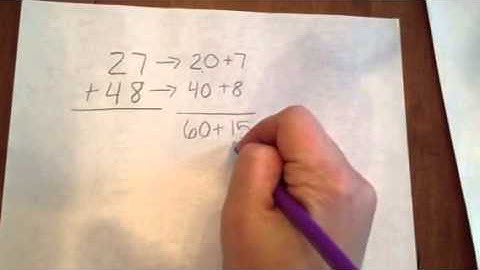 27 → 20+7
+48 → 40+8
60+15